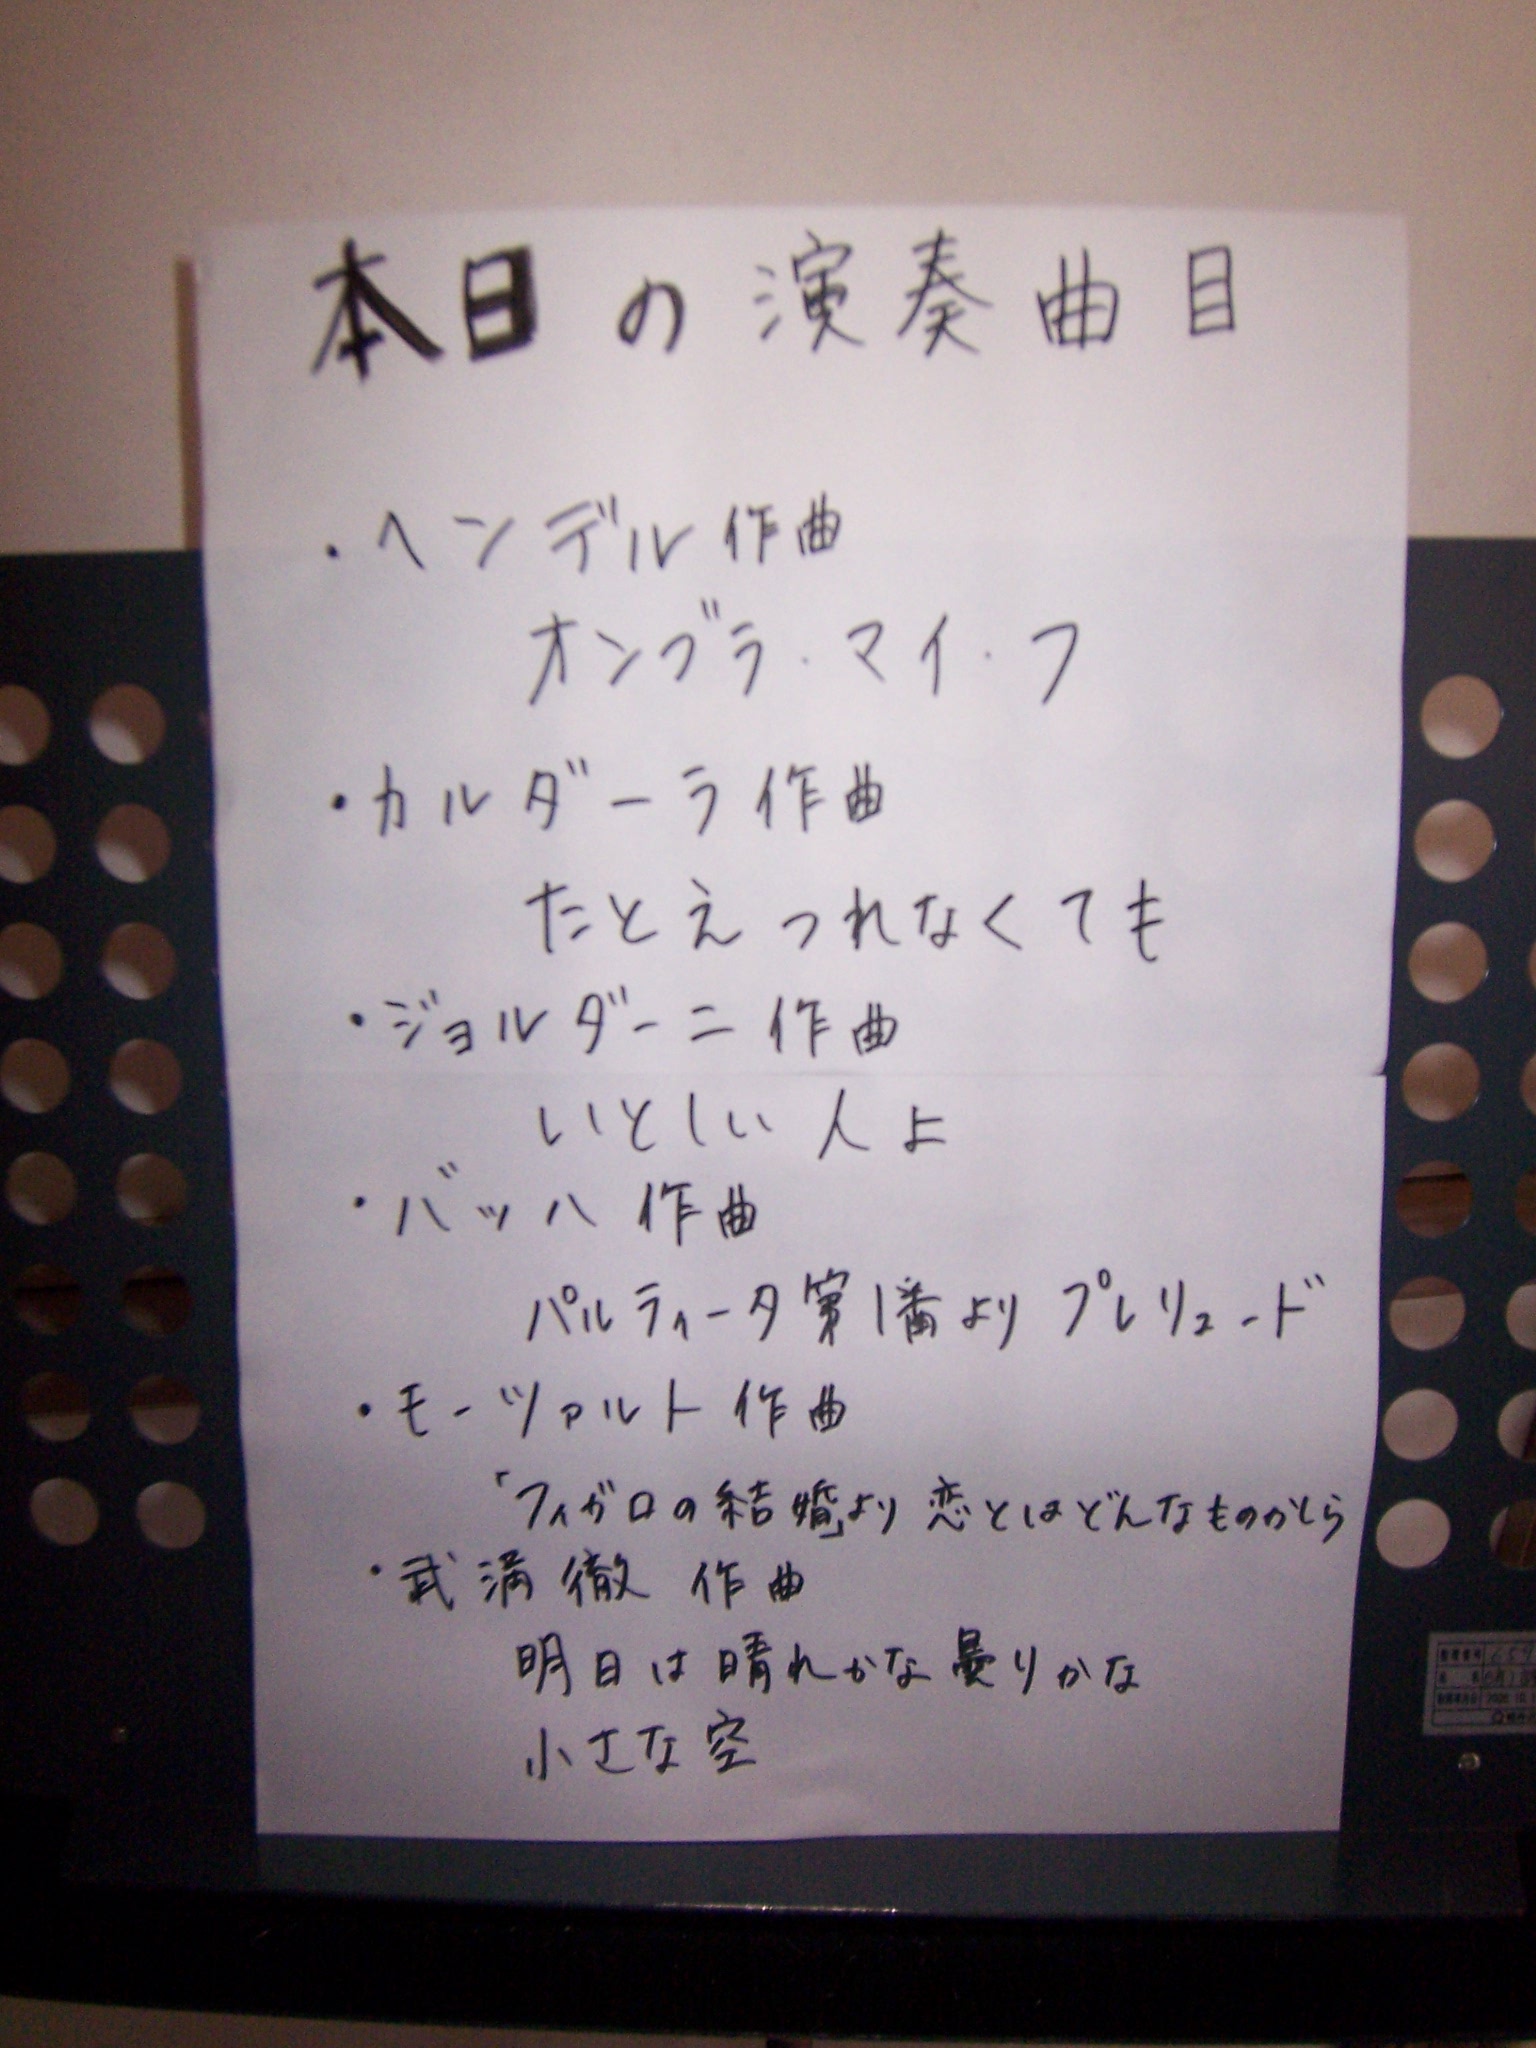 本日の演奏曲目
・ヘンデル作曲
オンブラ・マイ・フ
・カルダーラ作曲
たとえつれなくても
・ジョルダーニ作曲
いとしい人よ
・バッハ作曲
パルティータ第1番より プレリュード
・モーツァルト作曲
「フィガロの結婚」より 恋とはどんなものかしら
・武満徹 作曲
明日は晴れかな曇りかな
小さな空